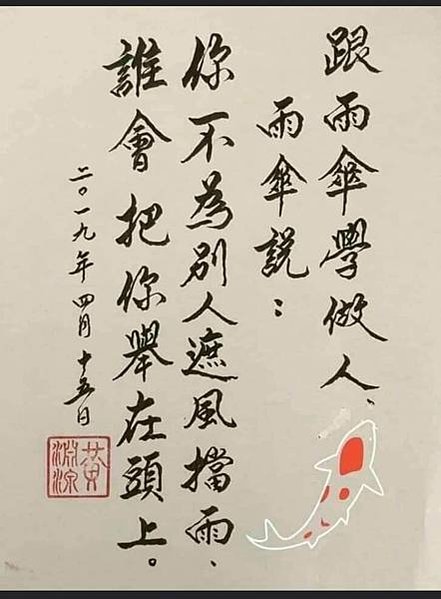 跟雨傘學做人、
雨傘説：
你不為別人遮風擋雨、
誰會把你舉在頭上。
二〇一九年四月十五日